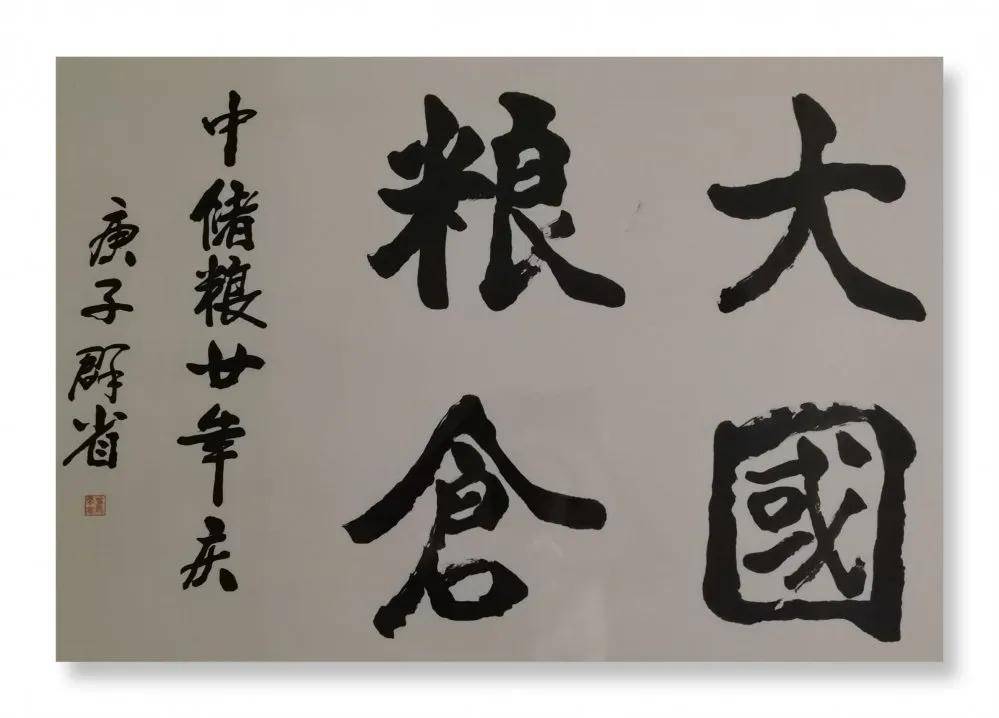 大國
粮倉
中储粮廿年庆
庚子群省